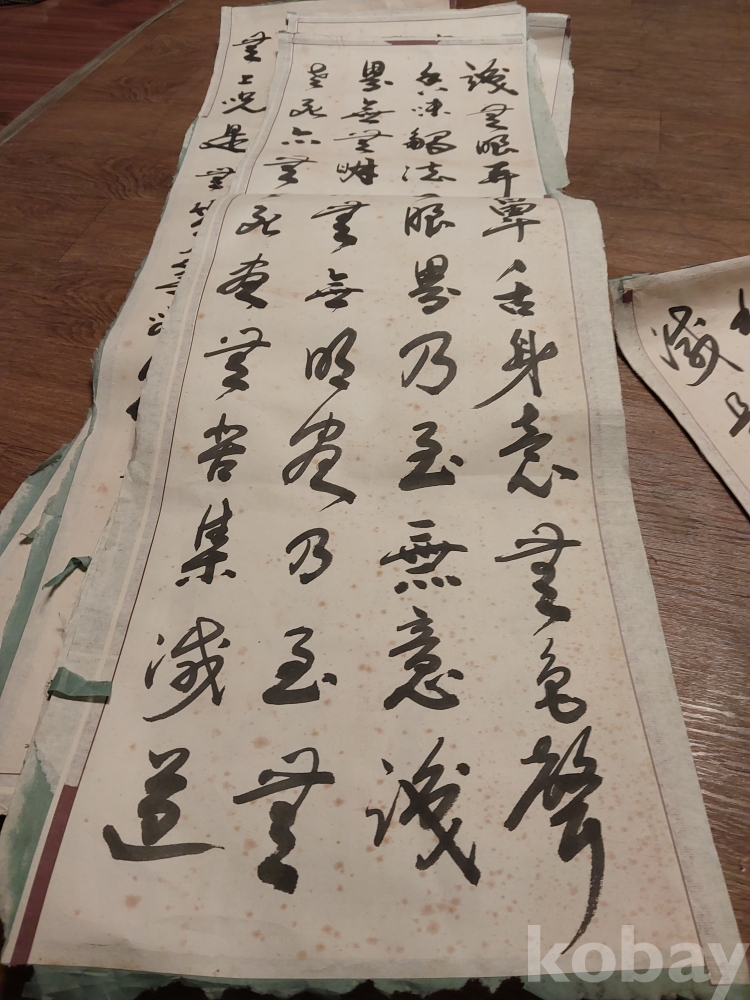 識無眼耳鼻舌身意無色聲
香味觸法眼界乃至無意識
界無無明無無明盡乃至無
老死亦無死盡無苦集滅道
無上呪是無等
滅
kobay